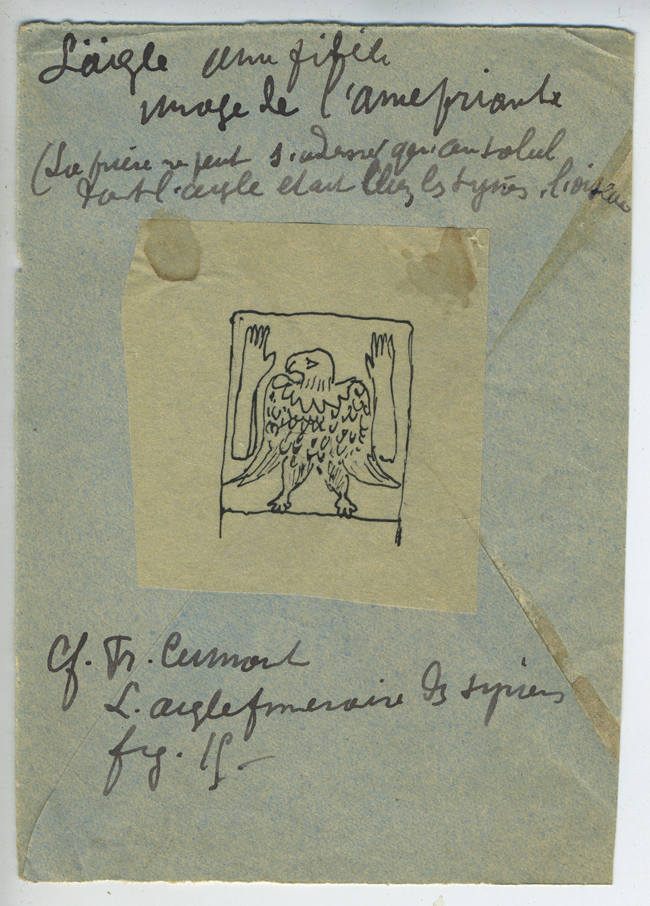 L'aigle
image de l'ame priante
(La prière ne peut s'adresser qu'au soleil
dont l'aigle etait chez les syriens l'oiseau
Cf. Fr. Cumont
L'aigle funeraire des syriens
fig. 15 -